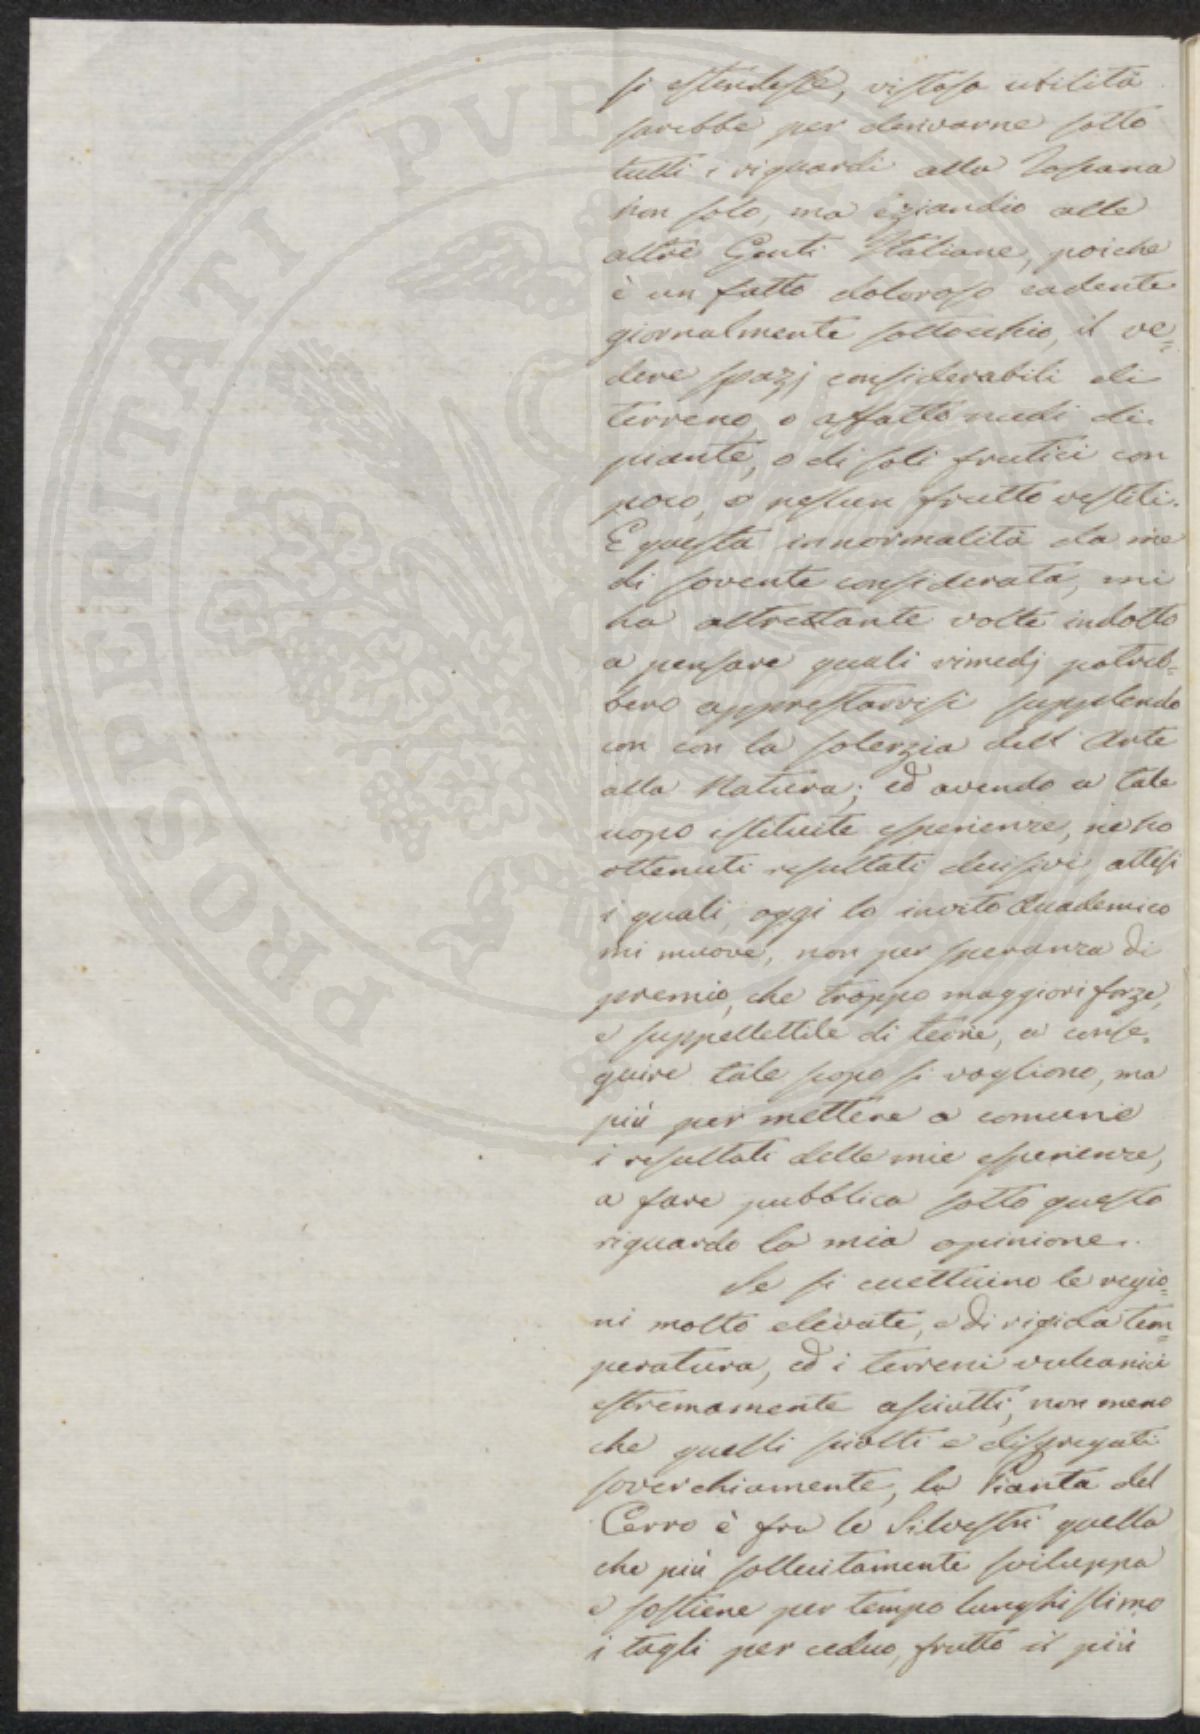 si estendesse, vistosa utilità
sarebbe per derivarne sotto
tutti i riguardi alla Toscana
non solo, ma eziandio alle
altre Genti Italiane, poiche
è un fatto doloroso cadente
giornalmente sottocchio, il ve=
dere spazj considerabili di
terreno, o affatto nudi di
piante, o di soli frutici con
poco, o nessun frutto vestiti.
E questa innormalità da me
di sovente considerata, mi
ha altrettante volte indotto
a pensare quali rimedj potreb=
bero apprestarvisi supplendo
con con la solerzia dell'Arte
alla Natura; ed avendo a tale
uopo istituite esperienze, ne ho
ottenuti resultati decisivi, attesi
i quali, oggi lo invito Accademico
mi muove, non per speranza di
premio, che troppo maggiori forze,
e suppellettile di teorie, a conse=
guire tale scopo si vogliono, ma
più per mettere a comune
i resultati delle mie esperienze,
a fare pubblica sotto questo
riguardo la mia opinione.
Se si eccettuino le regio=
ni molto elevate, e di rigida tem=
peratura, ed i terreni vulcanici
estremamente asciutti, non meno
che quelli sciolti e disgregati
soverchiamente, la Pianta del
Cerro è fra le Silvestri quella
che più sollecitamente sviluppa
e sostiene per tempo lunghissimo
i tagli per ceduo, frutto il più
PROSPERITATI PUBLICAE